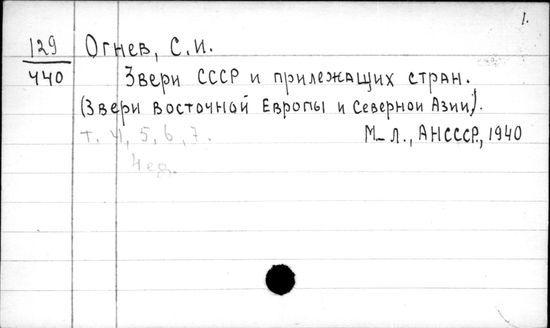 1.
129 Огнев, С.И.
440 Звери СССР и прилежащих стран.
(Звери восточной Европы и Северной Азии).
т. 4, 5, 6, 7. М-Л., АНСССР, 1940
4 ед.